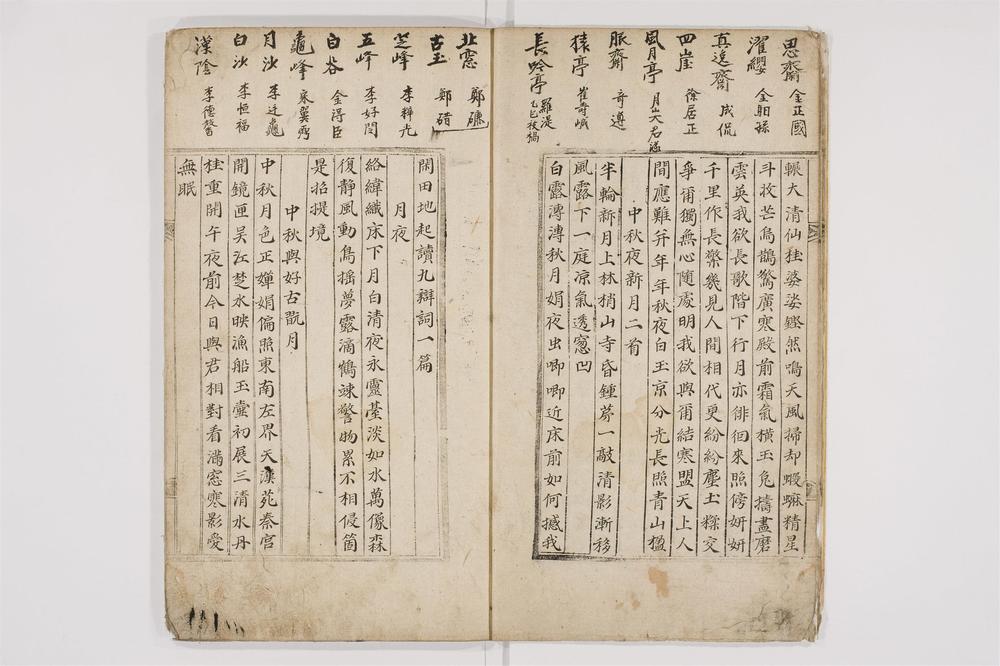 思齋 金正國
濯纓 金馹孫
真逸齋 成侃
四崖 徐居正
風月亭 月山大君
服齋 奇遵
猿亭 崔壽峸
長吟亭 羅湜 乙巳被禍
輾大清仙桂婆娑鏗然鳴天風掃却蝦蟆精星
斗收芒烏鵲驚廣寒殿前霜氣橫玉兔擣盡磨
雲英我欲長歌階下行月亦徘徊來照傍妍妍
千里作長檠幾見人間相代更紛紛塵土糅交
爭爾獨無心隨處明我欲與爾結寒盟天上人
間應難并年年秋夜白玉京分光長照青山楹
中秋夜新月二首
半輪新月上林梢山寺昏鍾第一敲清影漸移
風露下一庭凉氣透窓凹
白露漙漙秋月娟夜虫唧唧近床前如何撼我
北窓 鄭𥖝
古玉 鄭碏
芝峰 李睟光
五峰 李好閔
白谷 金得臣
龜峰 宋翼弼
月沙 李廷龜
白沙 李恒福
漢陰 李德馨
閑田地起讀九辯詞一篇
月夜
絡緯織床下月白清夜永靈臺淡如水萬像森
復静風動鳥搖夢露滴鶴竦警物累不相侵箇
是招提境
中秋與好古翫月
中秋月色正嬋娟偏照東南左界天漢苑秦宮
開鏡匣吳江楚水映漁船玉虀初展三清水丹
桂重開午夜前今日與君相對看滿窓寒影愛
無眠